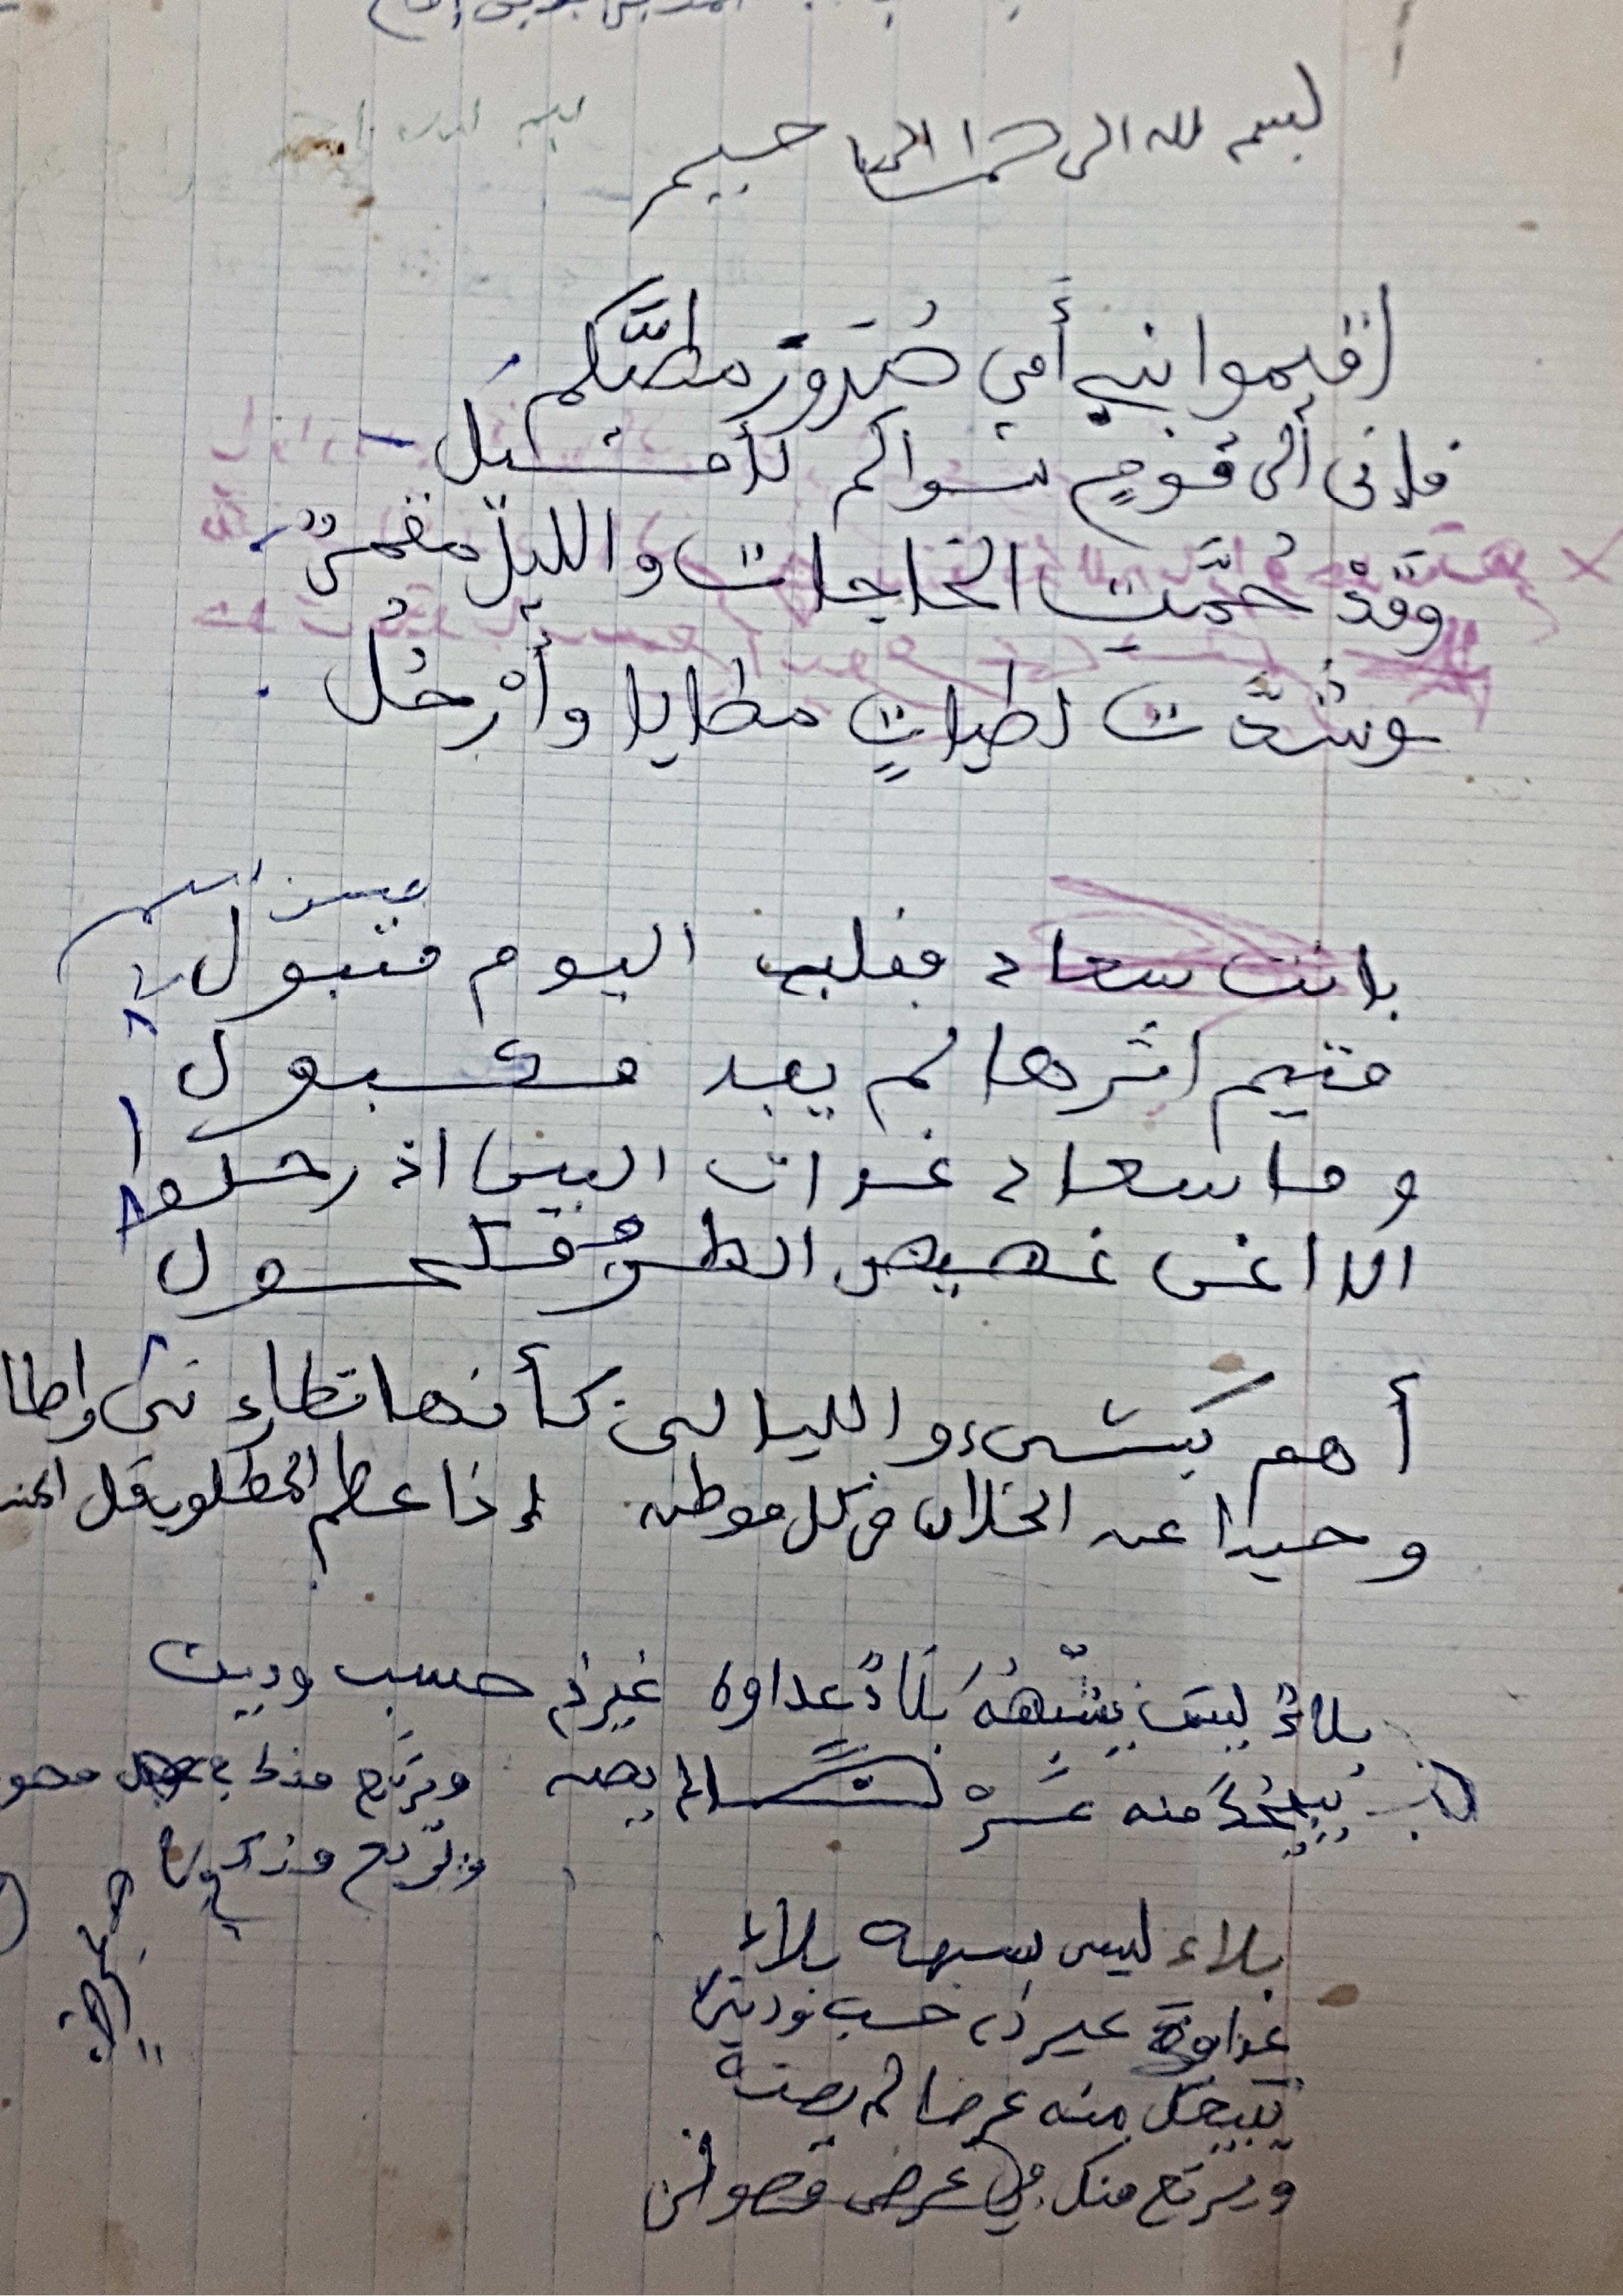 بسم لله الرحمن الرحيم
اقيموا بني أمي صُدَورَ مطيَّكم
فإنى ألى قومٍ سواكم لأميل
وَقَدْ حُمَّتِ الحاجات والليلُ مقمرٌ
وشدَّت لطياتٍ مطايا وأرْحُل
بانت سعاد فقلبي اليوم متبول
متيم اثرها لم يفد مكبول
وما سعاد غداة البين اذ رحلوا
الا اغن غضيض الطرف مكحول
أهم بشيء والليالي كأنها تطاردني واطا
وحيدا عن الخلان في كل موطن إذا عظم المطلوب قل المس
بلاءٌ ليسَ يشبِهُهُ بَلَاءٌ عداوة غير ذي حسب ودين
يبيحُكَ منه عرضا لم يصنه ويرتع منك في
ويرتع منك في
بلاء ليس يشبهه بلاء
عداوة غير ذي حسب ودين
يبيحك منه عرضا لم يصنه
ويرتع منك في عرض مصون